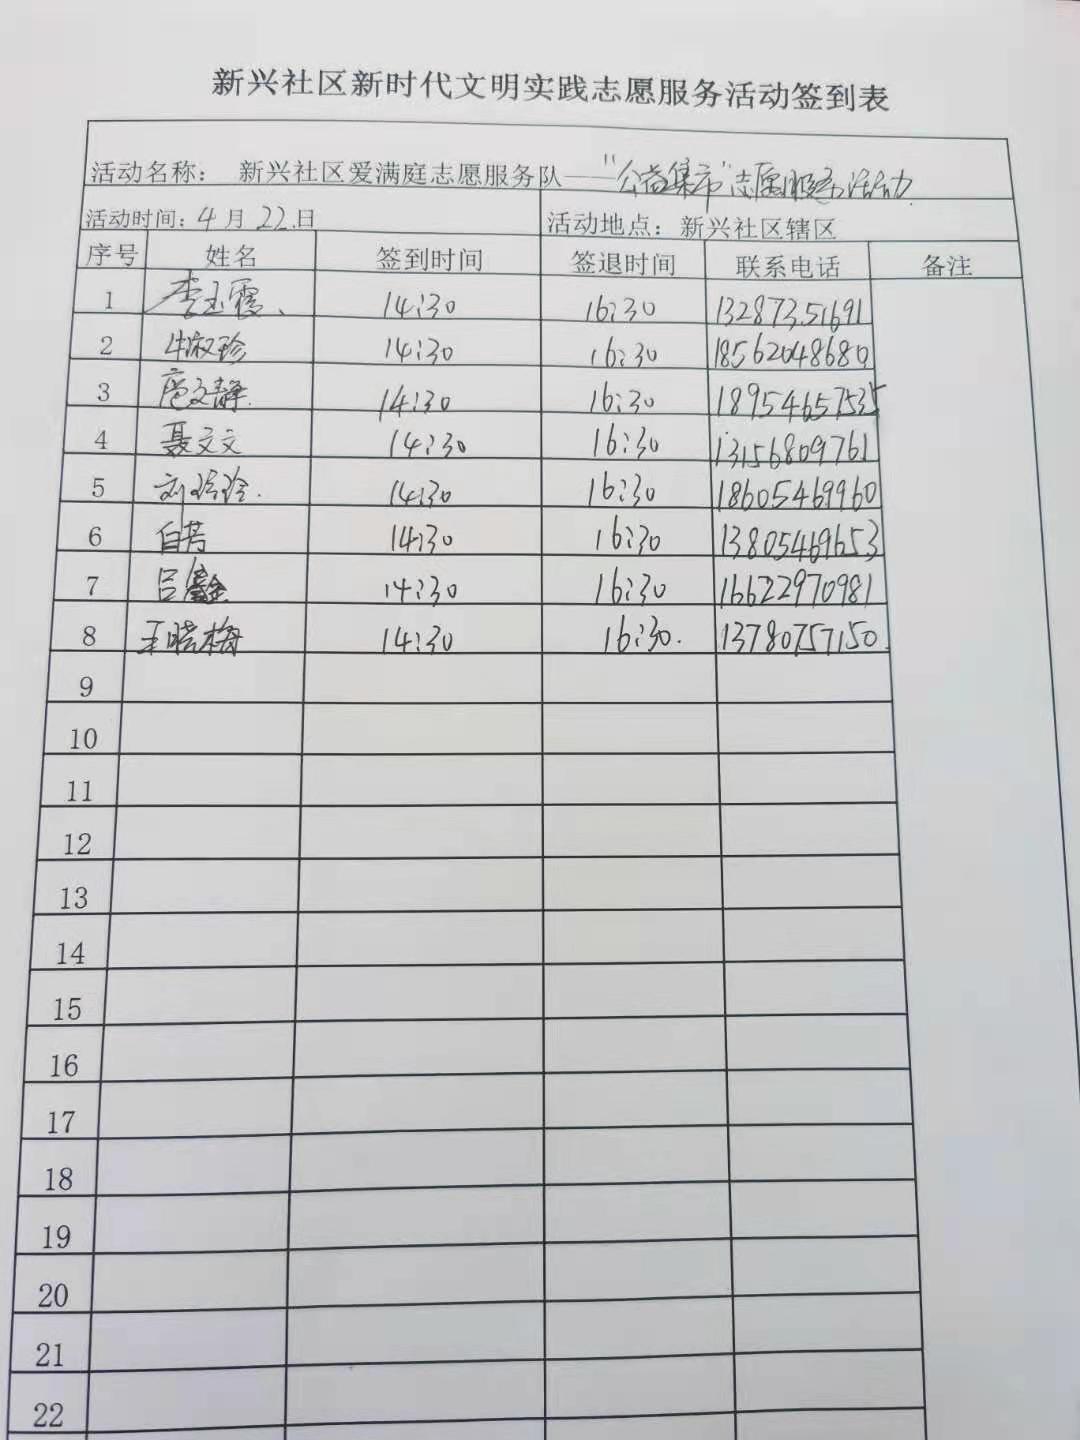 新兴社区新时代文明实践志愿服务活动签到表
活动名称： 新兴社区爱满庭志愿服务队——“公益集市”志愿服务活动.
活动时间：4月22.日 活动地点：新兴社区辖区
序号 姓名 签到时间 签退时间 联系电话 备注
1 李玉霞、 14:30 16:30 13287351691
2 牛淑珍 14:30 16:30 18562048680
3 扈文静. 14:30 16:30 18954657535
4 聂文文 14:30 16:30 13156809761
5 刘玲玲. 14:30 16:30 18605469960
6 白芳 14:30 16:30 13805469653
7 吕 14:30 16:30 16622970981
8 王晓梅 14:30 16:30. 13780757150.
9
10
11
12
13
14
15
16
17
18
19
20
21
22